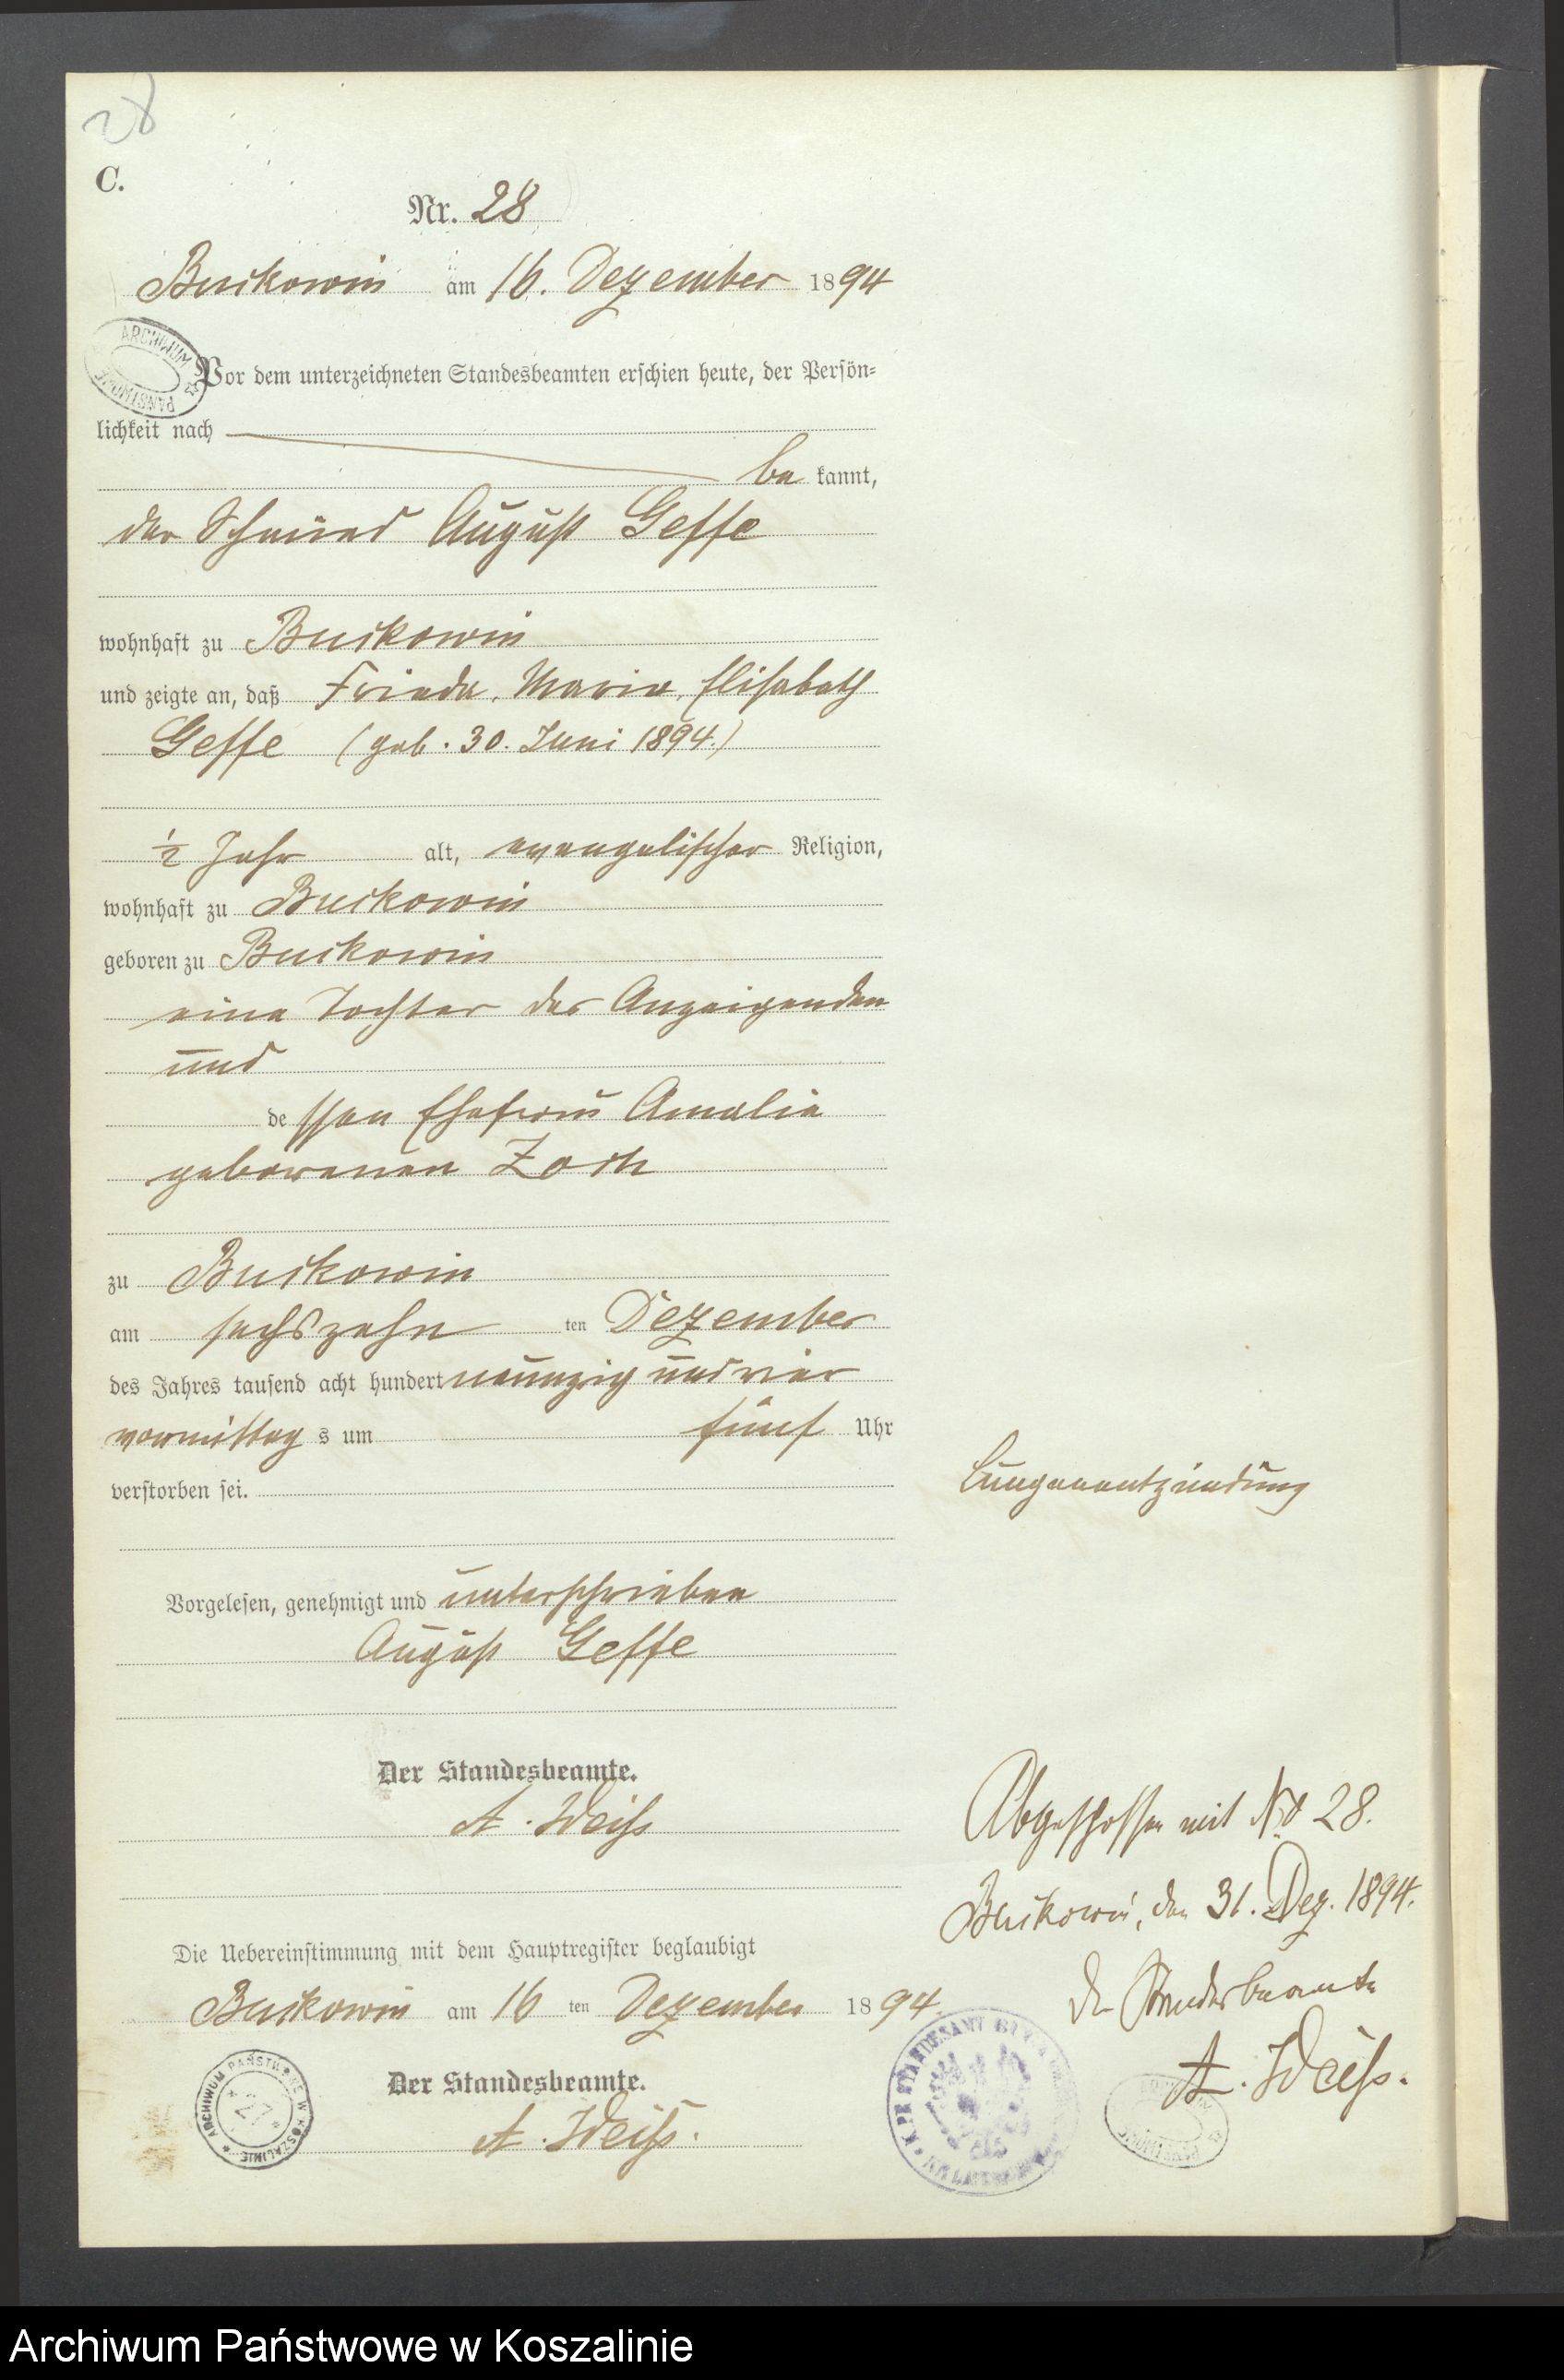 28
C.
Nr. 28
Buckowin am 16. Dezember 1894
Vor dem unterzeichneten Standesbeamten erschien heute, der Persön-
lichkeit nach
be kannt,
der Schmied August Geffe
wohnhaft zu Buckowin
und zeigte an, daß Frieda, Maria, Elisabeth
Geffe (geb. 30. Juni 1894.)
½ Jahr alt, evangelischer Religion,
wohnhaft zu Buckowin
geboren zu Buckowin
eine Tochter des Anzeigenden
und
dessen Ehefrau Amalie
geborenen
zu Buckowin
am sechszehn ten Dezember
des Jahres tausend acht hundert neunzig und vier
vormittag s um fünf Uhr
verstorben sei.
Lungenentzündung
Vorgelesen, genehmigt und unterschrieben
August Geffe
Der Standesbeamte.
A. Weiß
Abgeschlossen mit No 28.
Buckowin, den 31. Dez. 1894.
Der Standesbeamte
A. Weiß.
Die Uebereinstimmung mit dem Hauptregister beglaubigt
Buckowin am 16 ten Dezember 1894.
Der Standesbeamte.
A. Weiß.
ARCHIWUM PAŃSTWOWE W KOSZALINIE
Archiwum Państwowe w Koszalinie